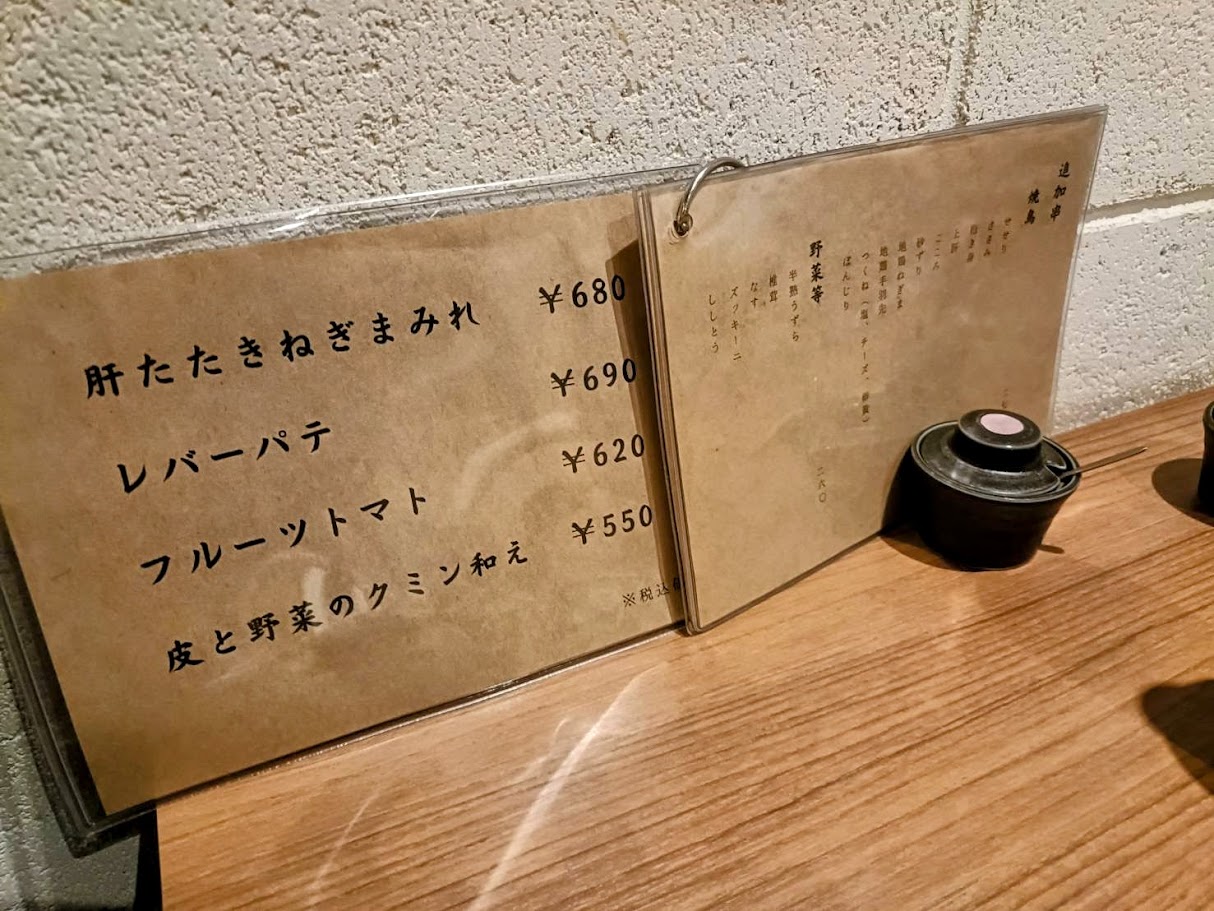 肝たたきねぎまみれ ¥680
レバーパテ ¥690
フルーツトマト ¥620
皮と野菜のクミン和え ¥550
※税込
追加串
焼鳥
せせり
ささみ
抱き身
上肝
こころ
砂ずり
地鶏ねぎま
地鶏手羽先
つくね(塩、チーズ、
ぼんじり
野菜等
半熟うずら
椎茸
なす
ズッキーニ
ししとう
二六〇